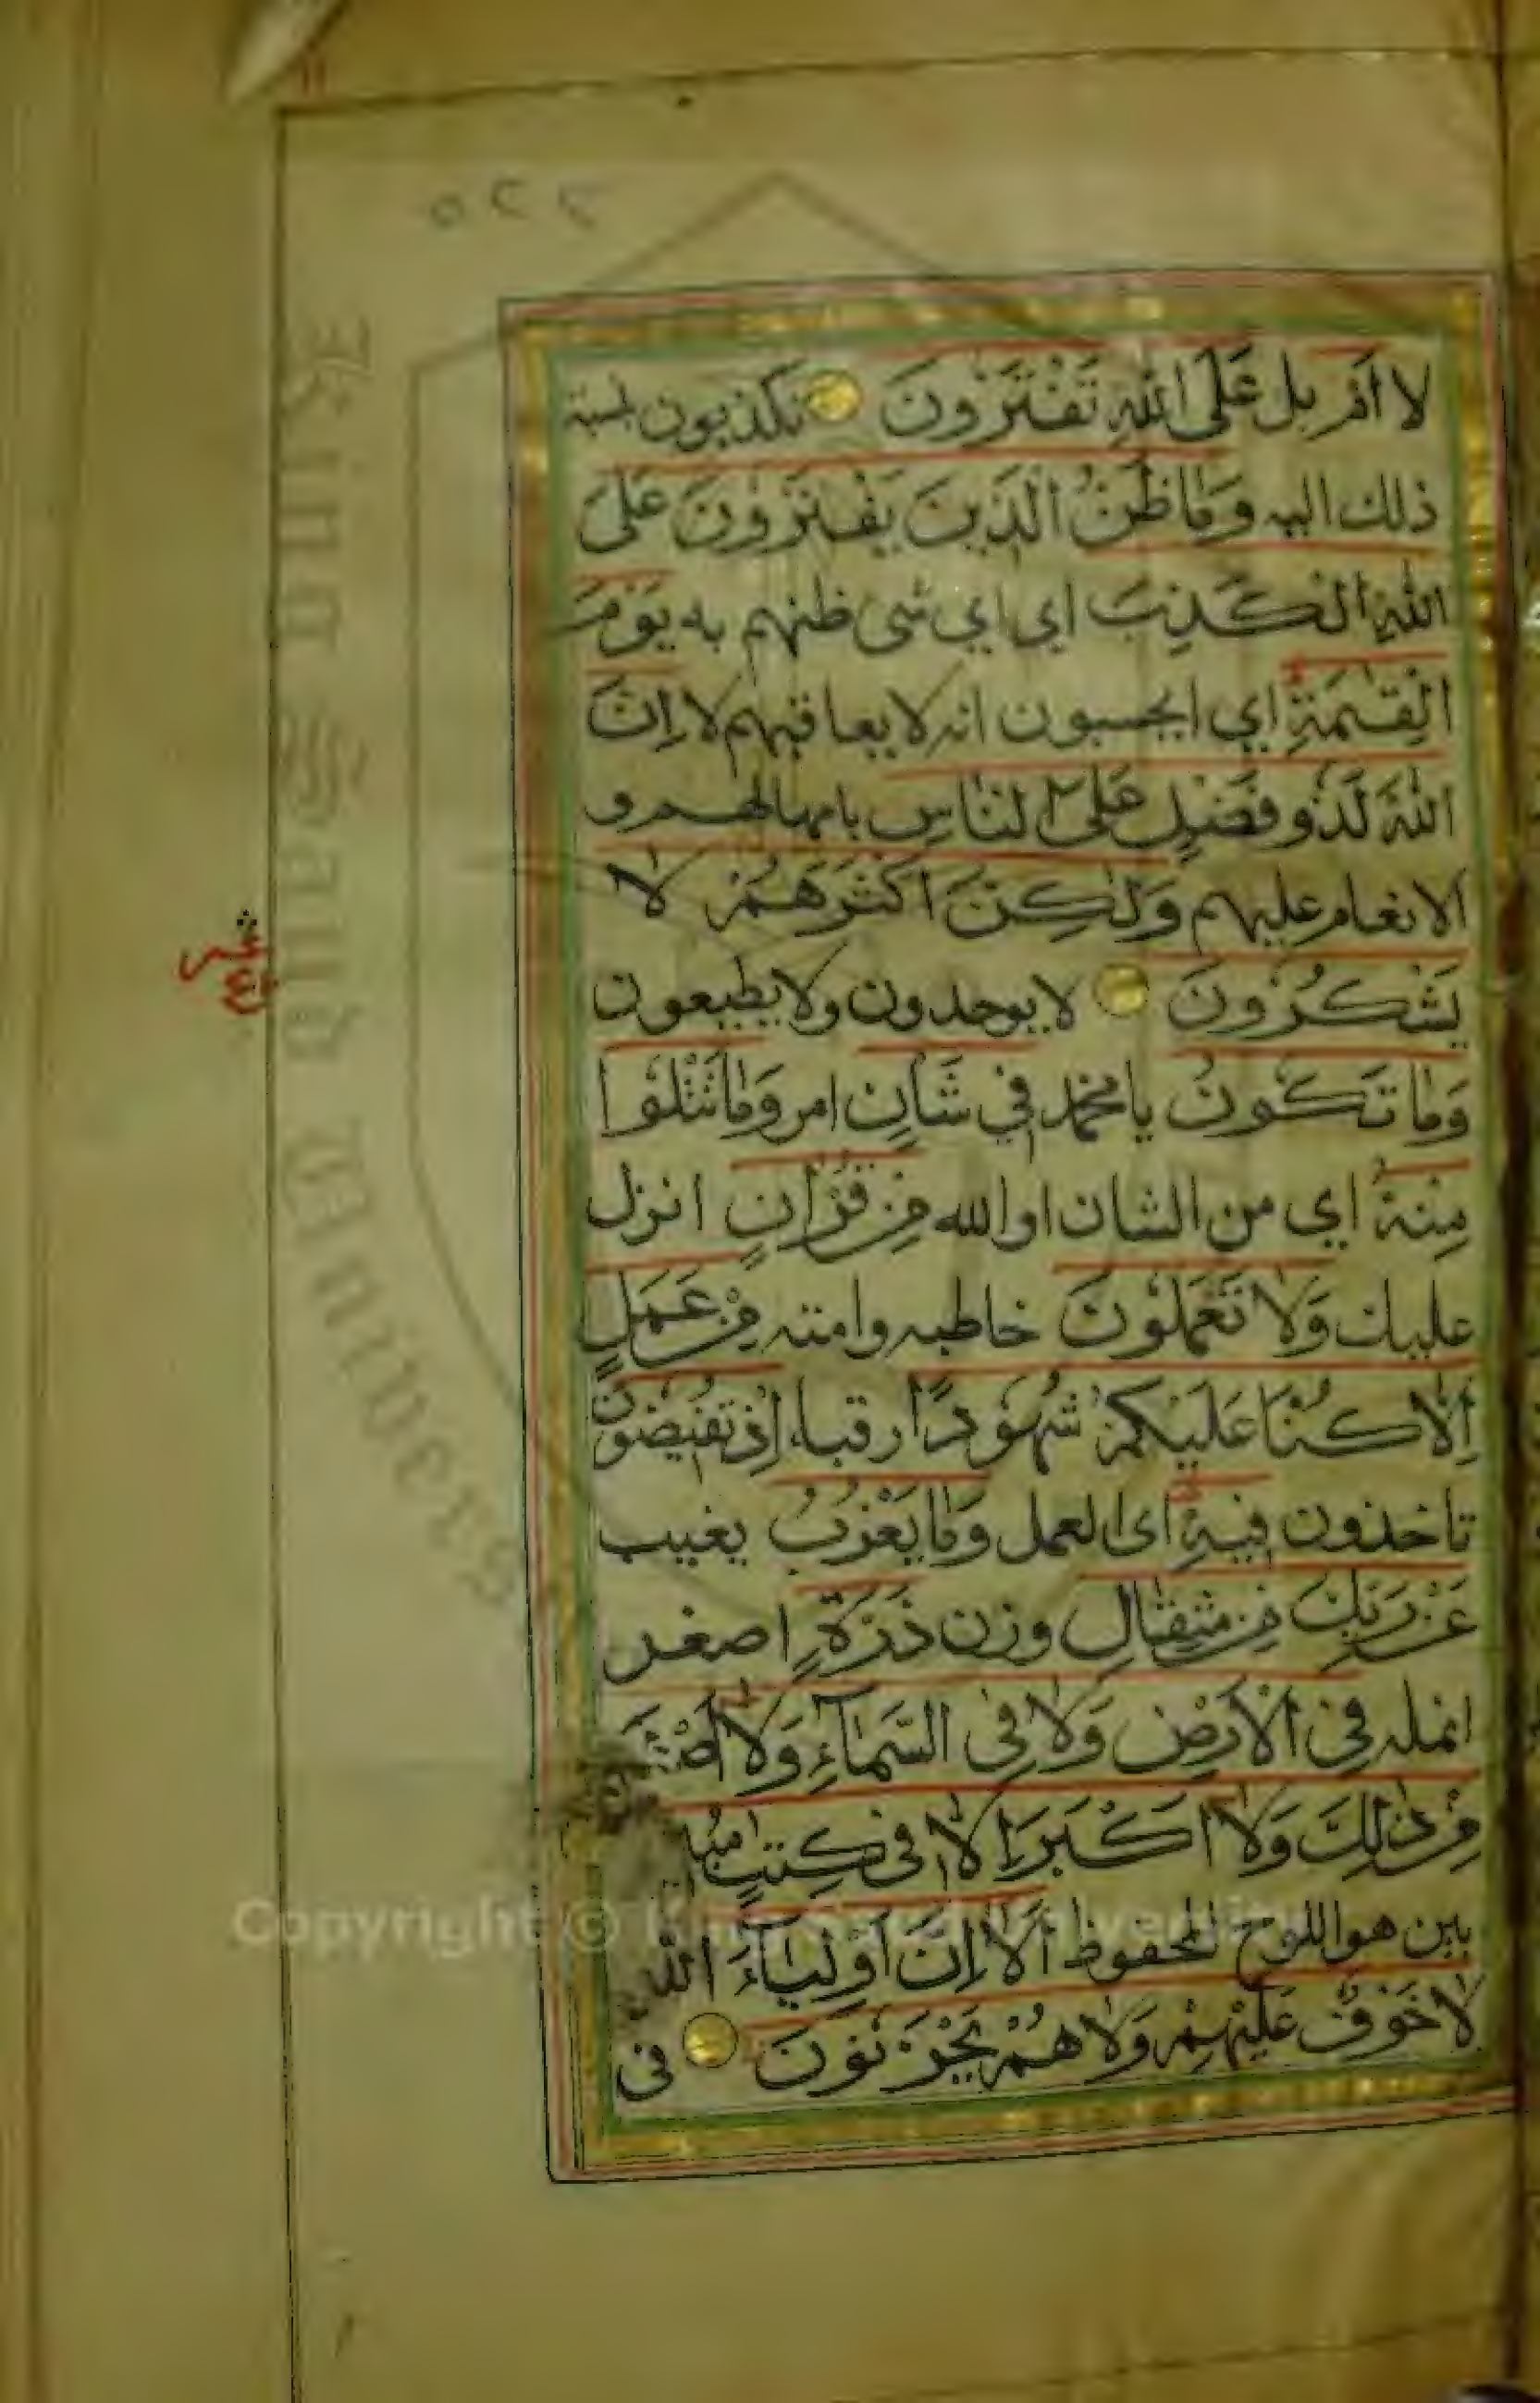 لا اَمْ بل عَلَى اللّٰهِ تَفْتَرُونَ تكذبون بنسبة
ذلك اليه وَمَا ظَنُّ الَّذِينَ يَفْتَرُونَ عَلَى
اللّٰهِ الْكَذِبَ اي اي شى ظنهم به يَوْمَ
الْقِيٰمَةِ اي ايحسبون انه لا يعاقبهم لا اِنَّ
اللّٰهَ لَذُو فَضْلٍ عَلَى النَّاسِ بامهالهم و
الانعام عليهم وَلٰكِنَّ اَكْثَرَهُمْ لَا
يَشْكُرُونَ لا يوحدون ولا يطيعون
وَمَا تَكُونُ يا محمد فِي شَأنٍ امر وَمَا تَتْلُوا
مِنْهُ اي من الشان او الله مِنْ قُرْاٰنٍ انزل
عليك وَلَا تَعْمَلُونَ خاطبه وامته مِنْ عَمَلٍ
اِلَّا كُنَّا عَلَيْكُمْ شُهُودًا رقباء اِذْ تُفِيضُونَ
تاخذون فِيهِ اى العمل وَمَا يَعْزُبُ يغيب
عَنْ رَبِّكَ مِنْ مِثْقَالِ وزن ذَرَّةٍ اصغر
نمله فِي الْاَرْضِ وَلَا فِي السَّمَآءِ وَلَا
مِنْ ذٰلِكَ وَلَا اَكْبَرَ اِلَّا فِي كِتٰبٍ
بين هو اللوح المحفوظ اَلَا اِنَّ اَوْلِيَآءَ اللّٰهِ
لَا خَوْفٌ عَلَيْهِمْ وَلَا هُمْ يَحْزَنُونَ فى
عشر
Copyright © King Saud University